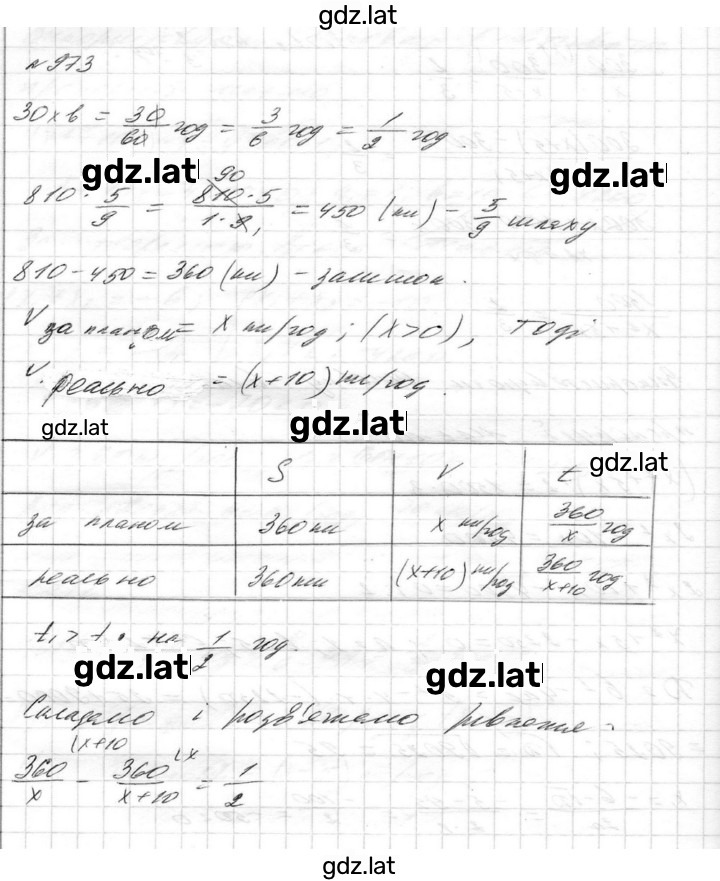 gdz.lat
№973
30 хв = 30/60 год = 3/6 год = 1/2 год.
gdz.lat gdz.lat
810 · 5/9 = 810·5/1·9 = 450 (км) - 5/9 шляху
90
1
810 - 450 = 360 (км) - залишок.
V за планом = x км/год; (x>0), тоді
V реально = (x+10) км/год.
gdz.lat gdz.lat gdz.lat
S V t
за планом 360км x км/год 360/x год
реально 360км (x+10) км/год 360/x+10 год
t₁ > t на 1/2 год.
gdz.lat gdz.lat
Складемо і розв'яжемо рівняння:
(x+10 (x
360/x - 360/x+10 = 1/2
gdz.lat